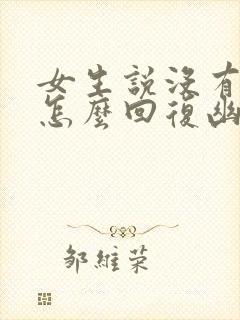 女生説沒有
怎麼回復幽
邹維荣